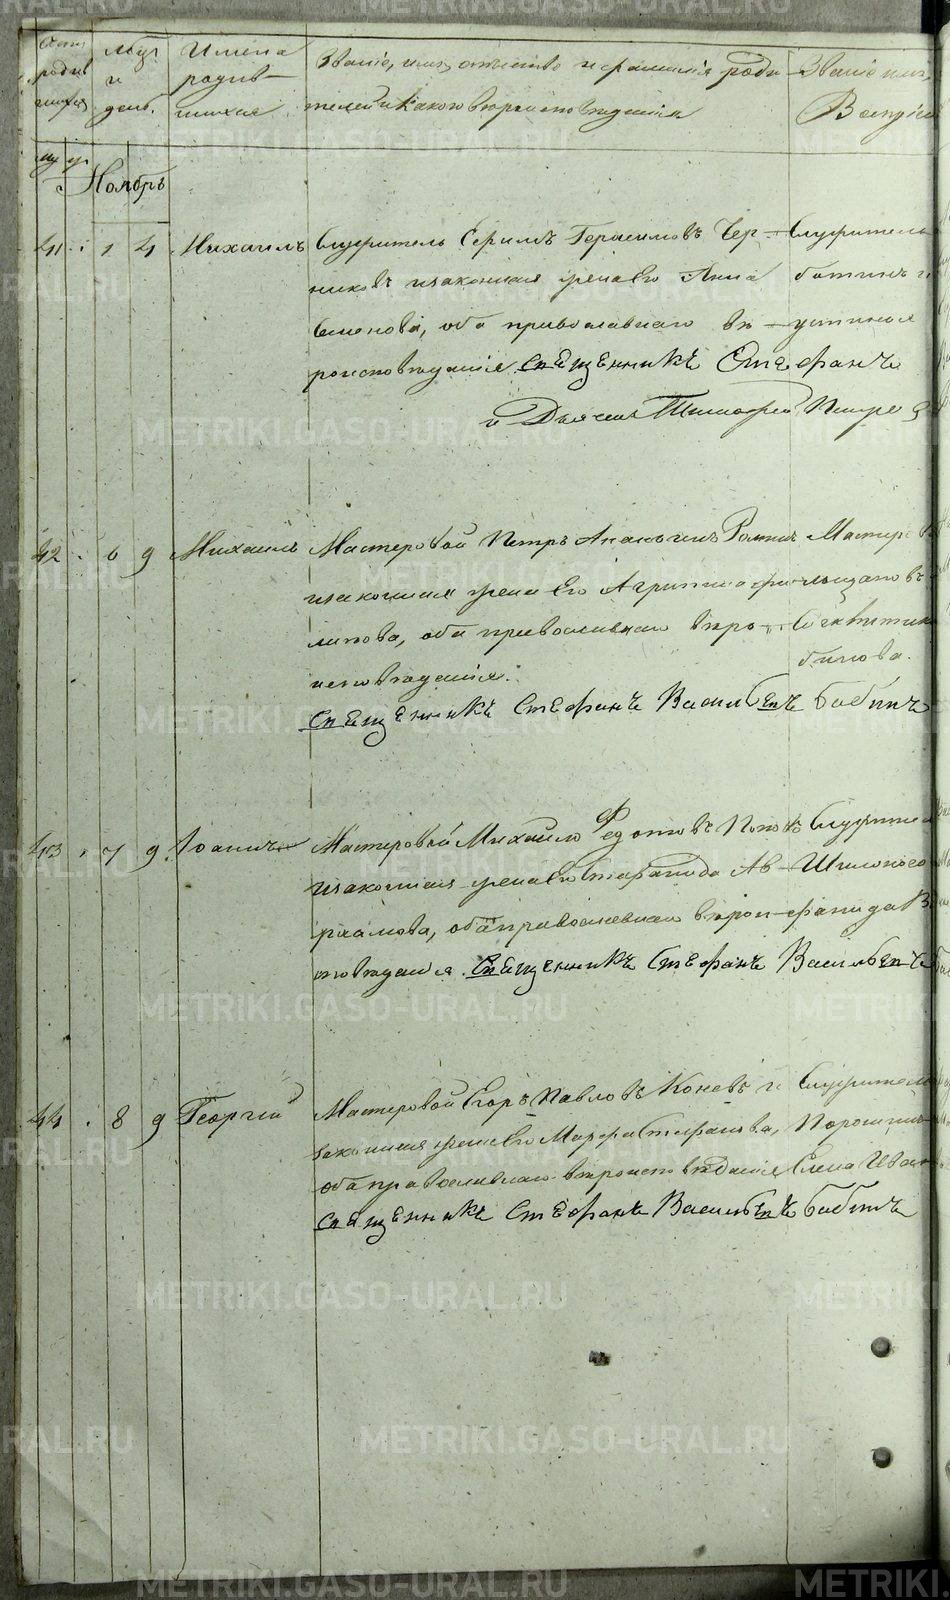 Счетъ родив шихся
мсцъ и день.
Имена родив- шихся
Званіе, имя, отчество и фамилія роди-
телей и какого вѣроисповѣданія
Званіе имя,
Воспріем
му
Ноябрь
41 . 1 4 Михаилъ Служитель Герасимовъ Чер-
никовъ и законная жена его Анна
Семенова, оба православнаго вѣ-
роисповѣданія. Священникъ Стефанъ
и Дьячекъ Тимофей Петро
Служитель
устинья
42 . 6 9 Михаилъ Мастеровой Петръ
и законная жена его Агрипина Фи-
липова, оба православнаго вѣро-
исповѣданія.
Священникъ Стефанъ Васильевъ Бабинъ
Мастеро
бинова.
43 . 7 9 Іоаннъ Мастеровой Михайло Федотовъ Поповъ
и законная жена его Степанида Ав-
рамова, оба православнаго вѣрои-
сповѣданія. Священникъ Стефанъ Васильевъ
Служител
Шилоносо
44 . 8 9 Георгій Мастеровой Егоръ Павловъ Коневъ и
законная жена его Марфа Стефанова,
оба православнаго вѣроисповѣданія
Священникъ Стефанъ Васильевъ Бабинъ
Служител
Елена Иван
METRIKI.GASO-URAL.RU